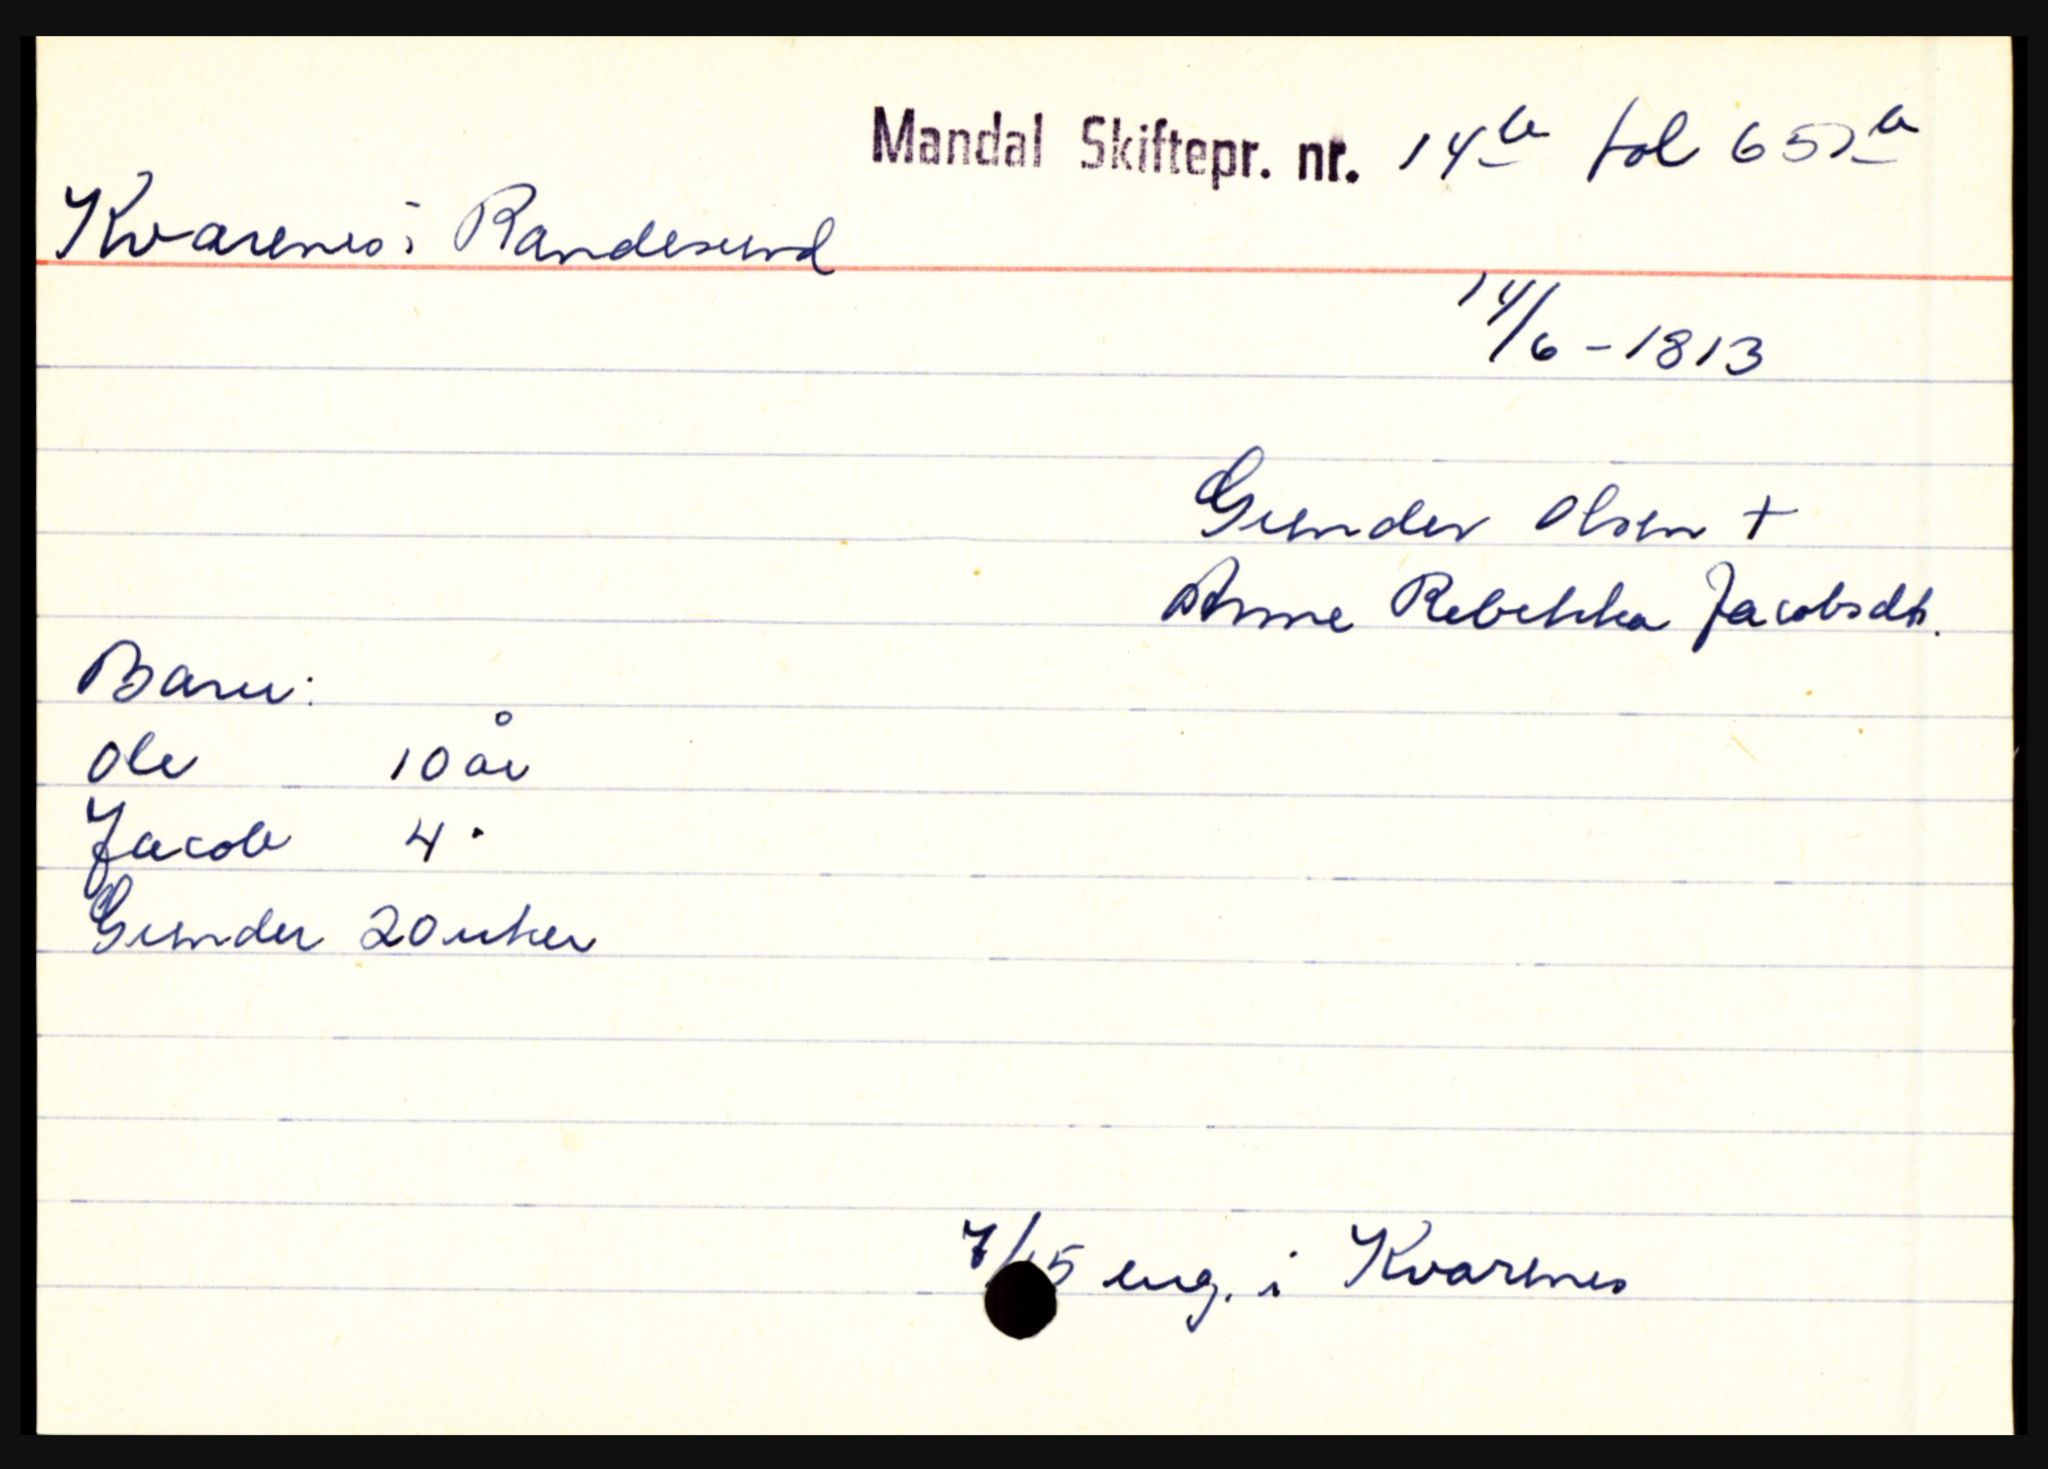 Mandal Skiftepr. nr. 14b fol 652b
Kvarenes i Randesund
14/6 - 1813
Gunder Olsen +
Anne Rebekka Jacobsdt.
Barn:
Ole 10 år
Jacob 4 "
Gunder 20 uker
7/15 eng. i Kvarenes